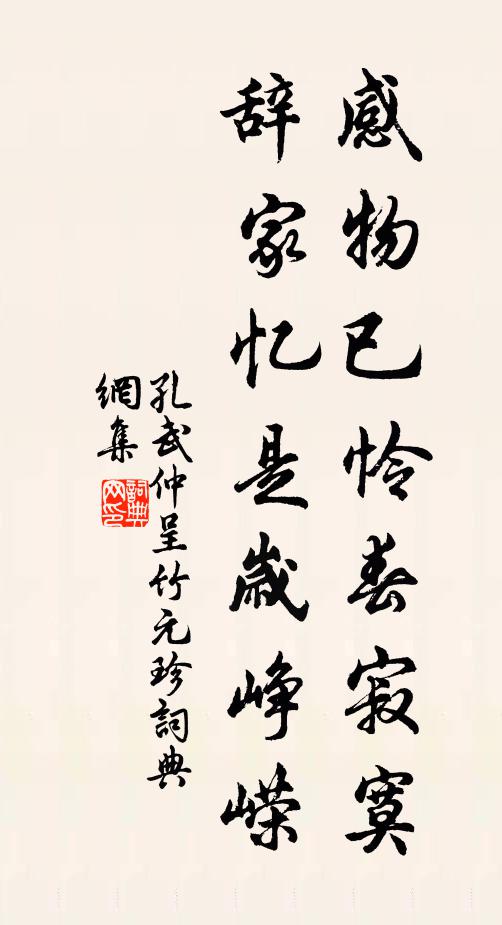 感物已怜春寂寞
辞家忆是岁峥嵘
孔武仲呈竹元珍詞典
網集
詞典
网印